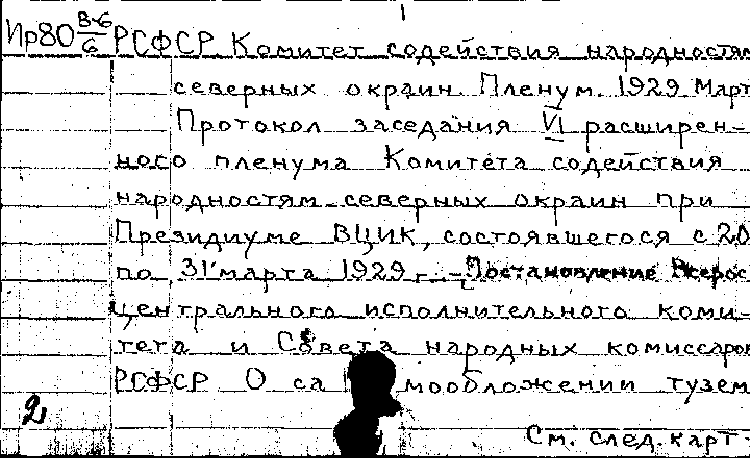 Ир80 В-6/6 РСФСР Комитет содействия народностям
северных окраин. Пленум. 1929. Март
Протокол заседания VI расширен-
ного пленума Комитета содействия
народностям северных окраин при
Президиуме ВЦИК, состоявшегося с 20
по 31 марта 1929 г. - Постановление Всерос
центрального исполнительного коми-
тета и Совета народных комиссаров
РСФСР О са мообложении тузем
2
См. след. карт.